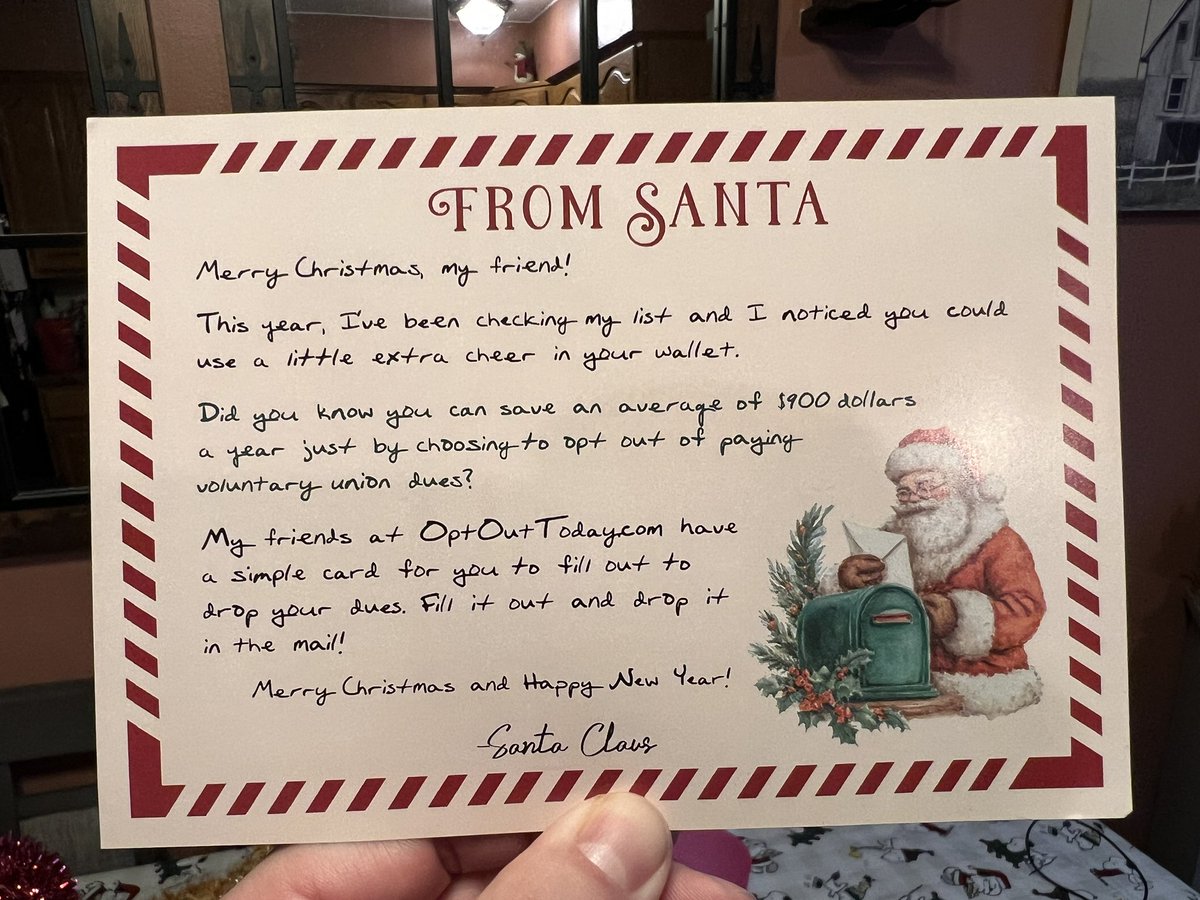 FROM SANTA
Merry Christmas, my friend!
This year, I've been checking my list and I noticed you could
use a little extra cheer in your wallet.
Did you know you can save an average of $900 dollars
a year just by choosing to opt out of paying
voluntary union dues?
My friends at OptOutToday.com have
a simple card for you to fill out to
drop your dues. Fill it out and drop it
in the mail!
Merry Christmas and Happy New Year!
-Santa Claus